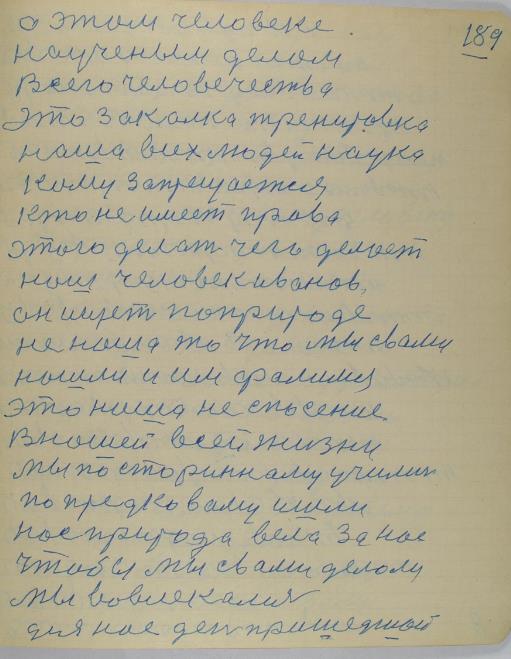 189
о этом человеке.
научным делом
всего человечества
это закалка тренировка
наша всех людей наука
кому запрещается
кто не имеет права
этого делат чего делает
наш человек иванов,
он ищет по природе
не наша то что мы с вами
нашли и им
это наша не спасение.
В нашей всей жизни
мы по сторинному училис
по предковаму шли
нас природа вела за нас
чтобы мы с вами делали
мы вовлекалис
для нас ден пришедший